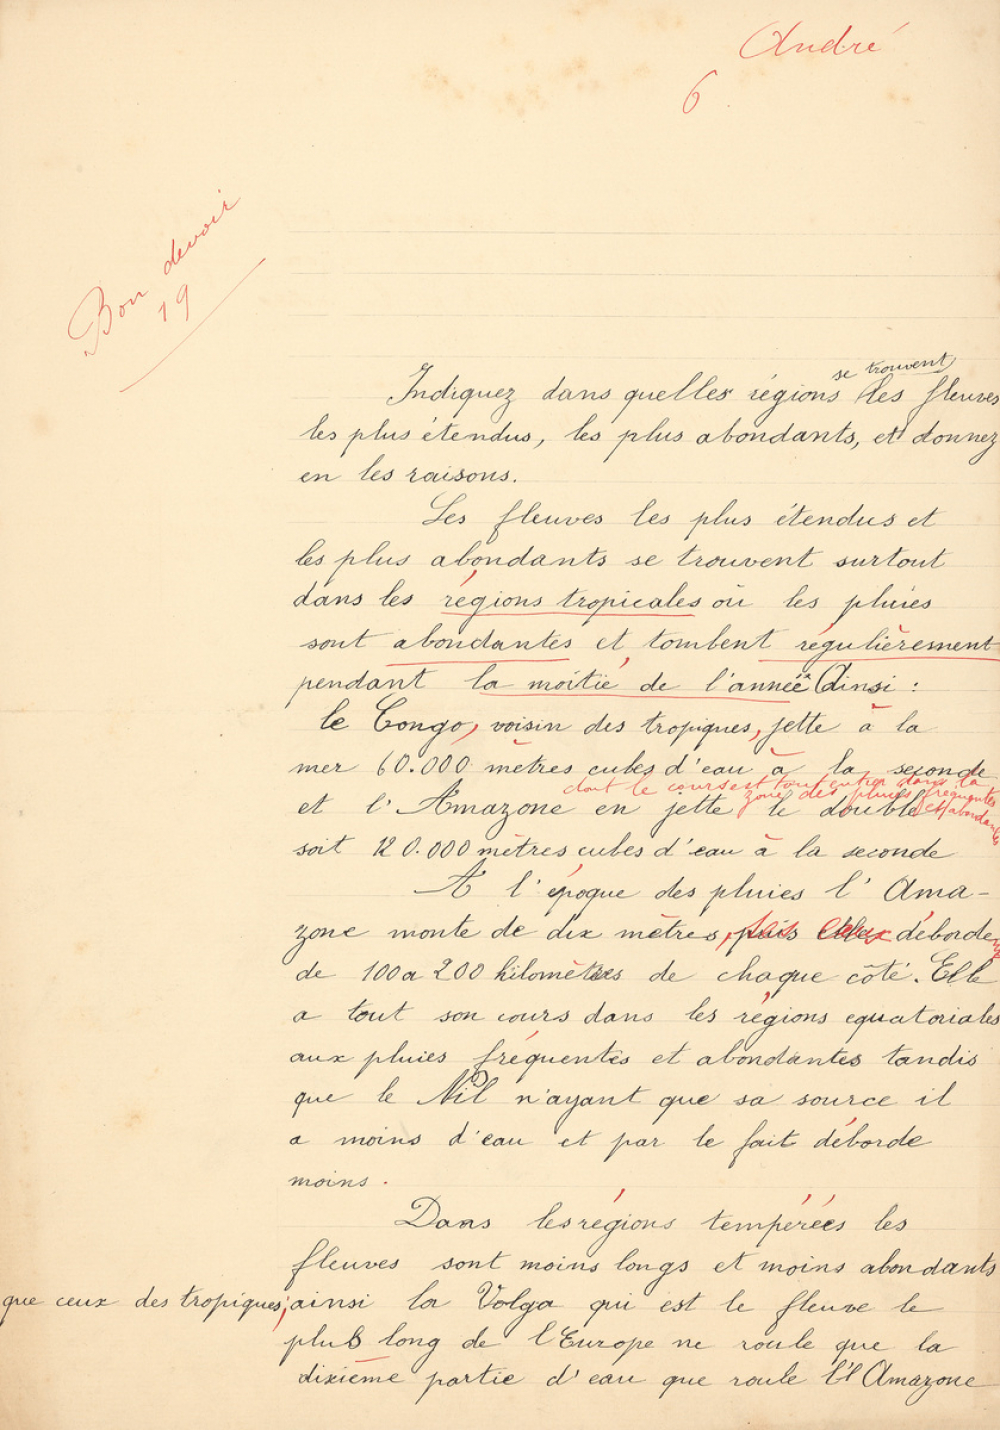 André
6
Bon devoir
19
se trouvent
Indiquez dans quelles régions les fleuves
les plus étendus, les plus abondants, et donnez
en les raisons.
Les fleuves les plus étendus et
les plus abondants se trouvent surtout
dans les régions tropicales où les pluies
sont abondantes et tombent régulièrement
pendant la moitié de l'année Ainsi :
le Congo, voisin des tropiques, jette à la
mer 60.000 mètres cubes d'eau à la seconde
dont le cours est tout entier dans la
zone des pluies fréquentes
et abondantes
et l'Amazone en jette le double
soit 120.000 mètres cubes d'eau à la seconde
A l'époque des pluies l'Ama-
zone monte de dix mètres, ses eaux débordent
de 100 a 200 kilomètres de chaque côté. Elle
a tout son cours dans les régions equatoriales
aux pluies fréquentes et abondantes tandis
que le Nil n'ayant que sa source il
a moins d'eau et par le fait déborde
moins.
Dans les régions tempérées les
fleuves sont moins longs et moins abondants
que ceux des tropiques; ainsi la Volga qui est le fleuve le
plus long de l'Europe ne roule que la
dixième partie d'eau que roule l'Amazone